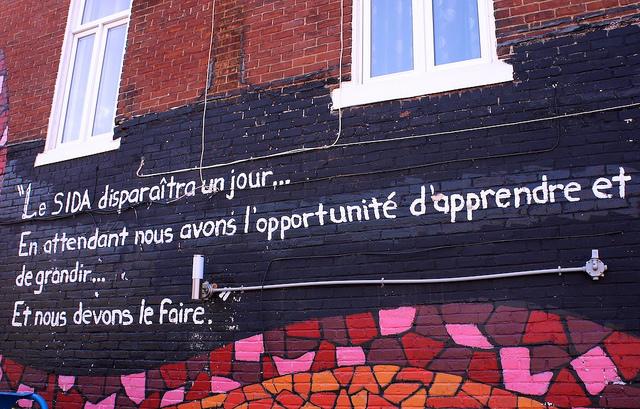 "Le SIDA disparaîtra un jour...
En attendant nous avons l'opportunité d'apprendre et
de grandir...
Et nous devons le faire.